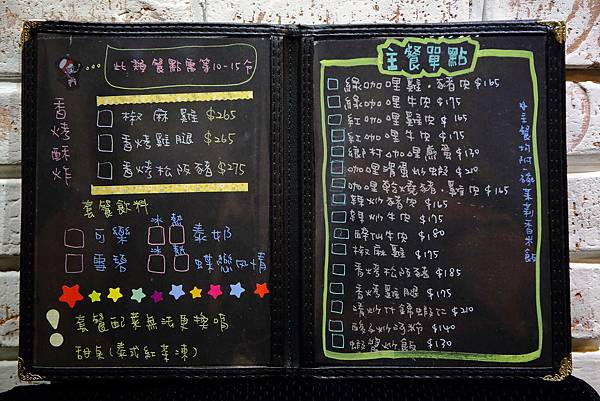 此類餐點需等10-15分
香烤酥炸
椒麻雞 $265
香烤雞腿 $265
香烤松阪豬 $275
套餐飲料
冰 熱
可樂 泰奶
冰 熱
雪碧 蝶戀風情
套餐配菜無法更換唷
甜點(泰式紅茶凍)
主餐單點
綠咖哩雞.豬肉 $165
綠咖哩牛肉 $175
紅咖哩雞肉 $165
紅咖哩牛肉 $175
鄉村咖哩 $130
咖哩滑蛋炒蝦 $210
咖哩乾燒豬.雞肉 $165
辣炒豬肉 $165
辣炒牛肉 $175
牛肉 $180
椒麻雞 $175
香烤松阪豬 $185
香烤雞腿 $175
清炒什錦蝦仁 $210
炒河粉 $140
蝦醬炒飯 $130
主餐均附一碗茉莉香米飯